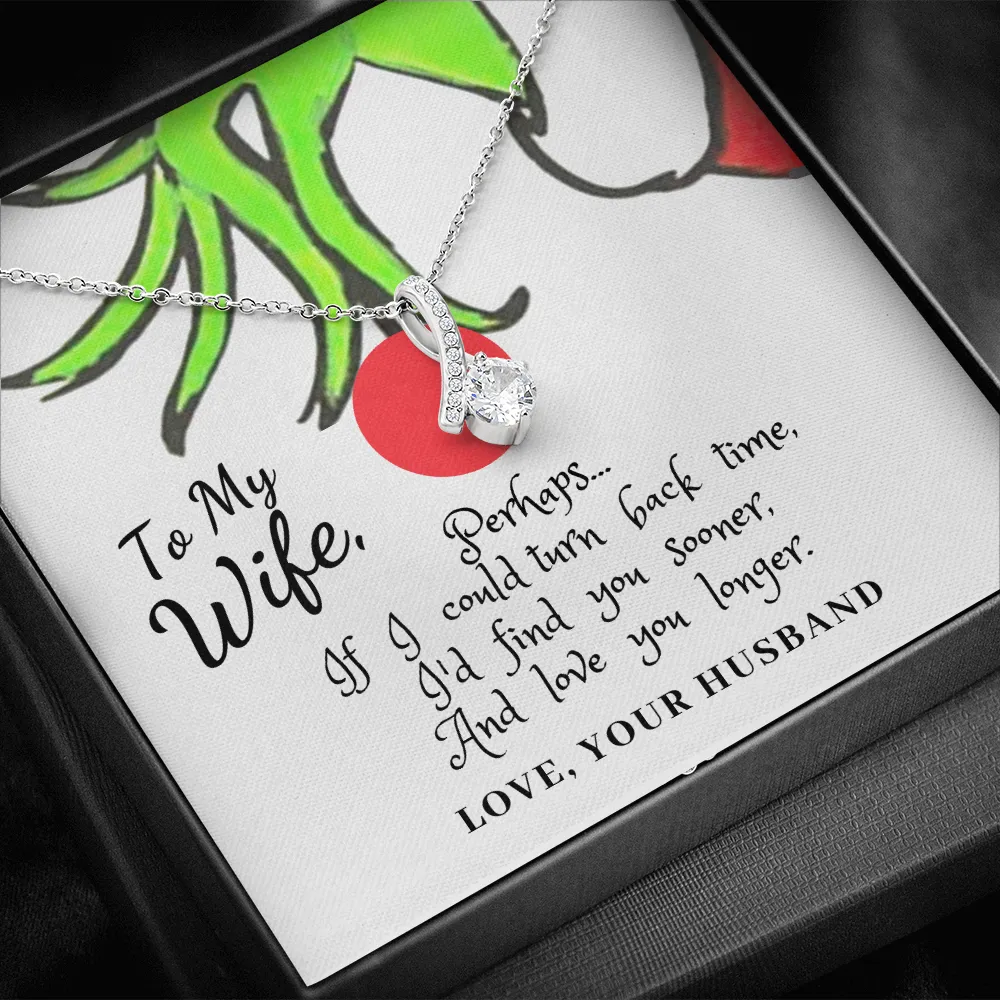 To My
Wife,
Perhaps...
If I could turn back time,
I'd find you sooner,
And love you longer.
LOVE, YOUR HUSBAND